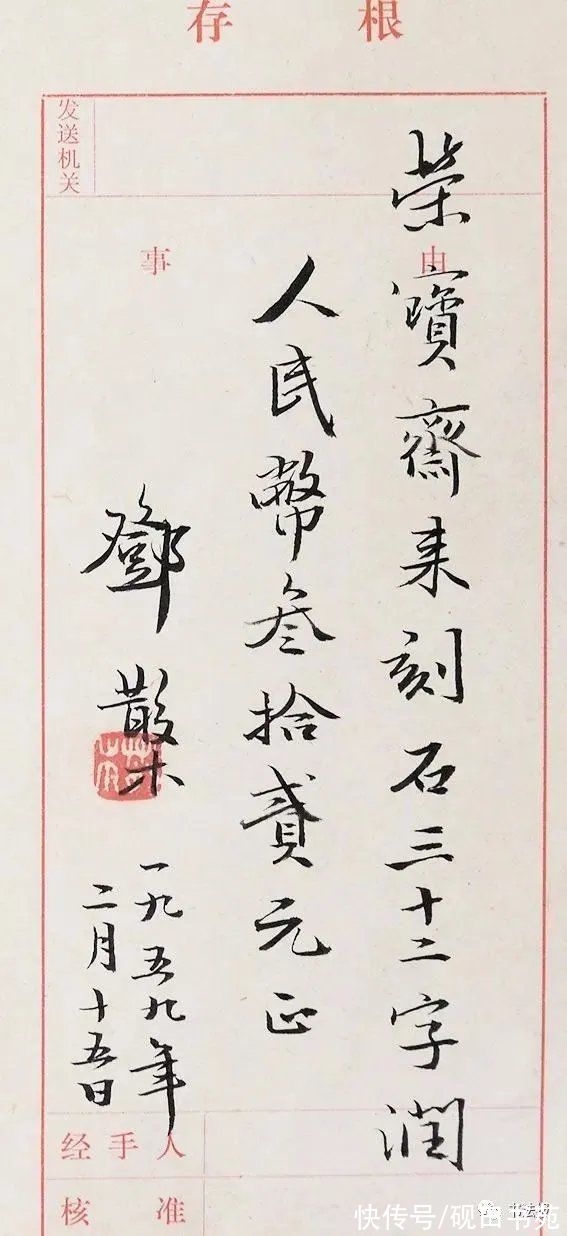 存根
发送机关
事由
荣寳齋来刻石三十二字润
人民幣叁拾贰元正
鄧散木
一九五九年
二月十五日
经手人
核准
快传号/砚田书苑